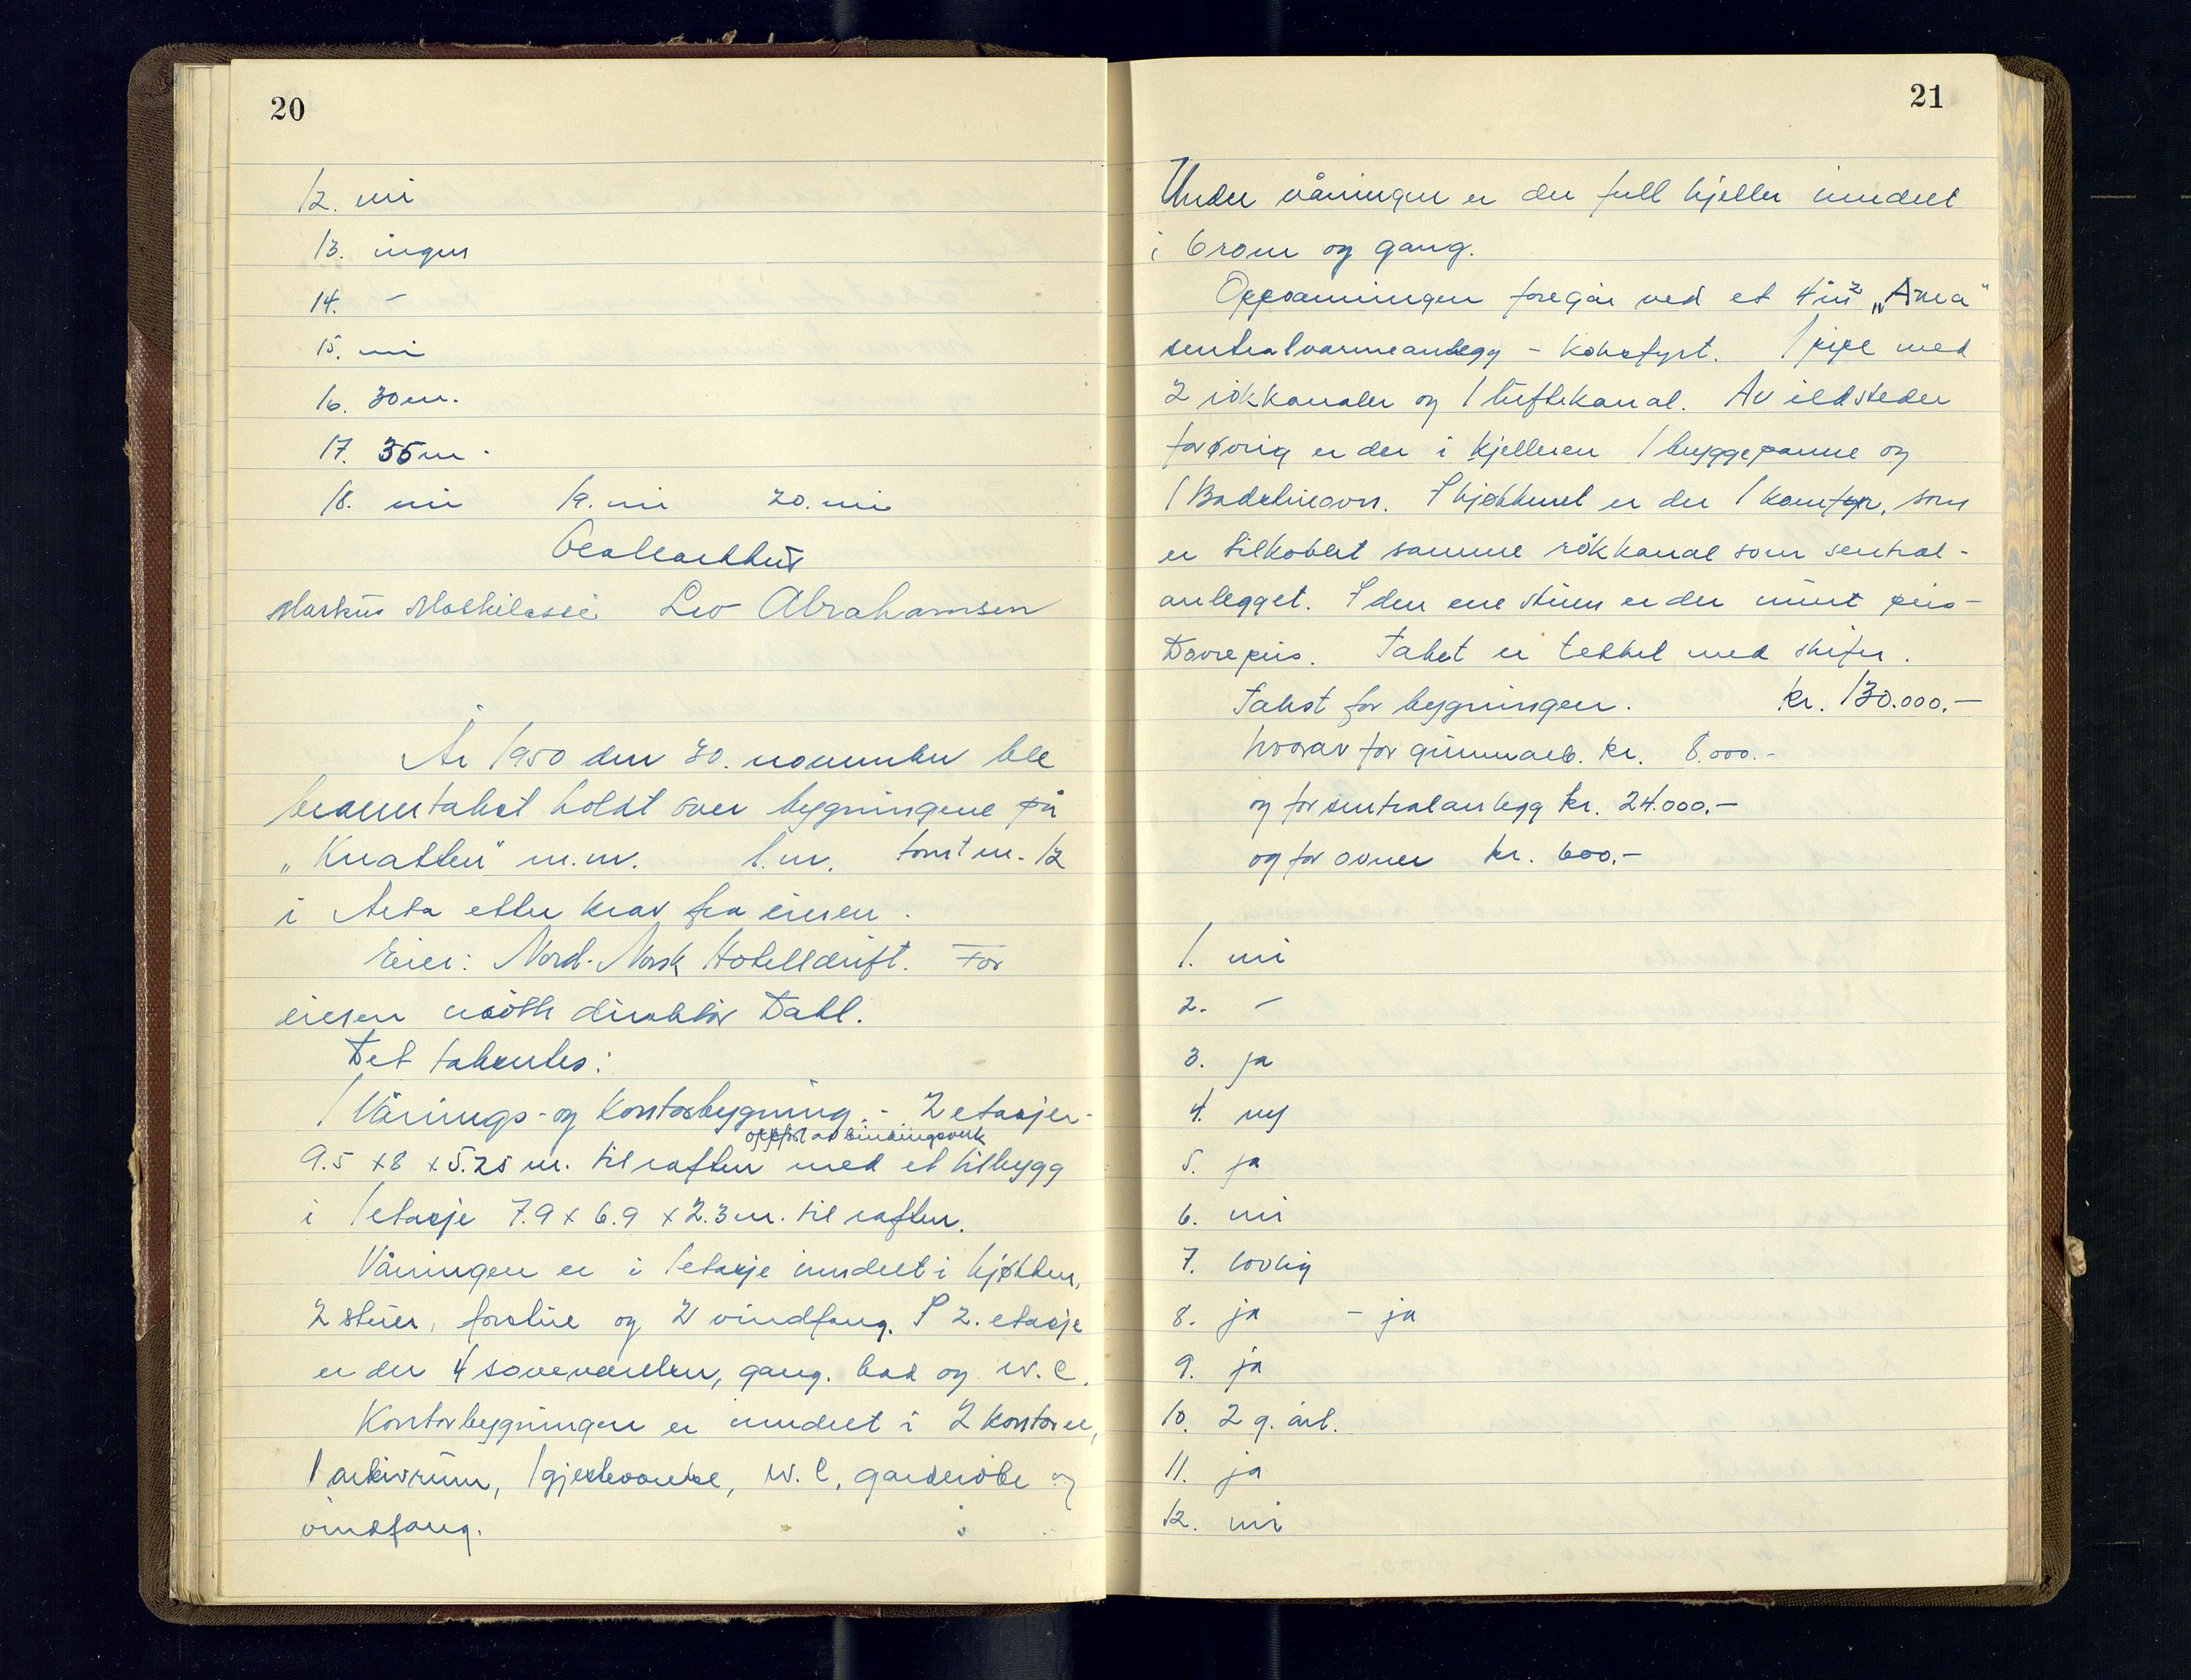 20
12. nei
13. ingen
14. –
15. nei
16. 30 m.
17. 35 m.
18. nei 19. nei 20. nei
Markus Mathilassi Leo Abrahamsen
År 1950 den 30. november ble
branntakst holdt over bygningene på
„Knatten" m.nr. b.nr. tomt nr. 12
i Alta etter krav fra eieren.
Eier: Nord-Norsk Hotelldrift. For
eieren møtte direktør Dahl.
Det taksertes:
1 Vånings- og Kontorbygning. – 2 etasjer –
oppført av bindingsverk
9.5 x 8 x 5.25 m. til raften med et tilbygg
i 1 etasje 7.9 x 6.9 x 2.3 m. til raften.
Våningen er i 1 etasje inndelt i kjøkken,
2 stuer, forstue og 2 vindfang. I 2. etasje
er der 4 soveværelser, gang, bad og W.C.
Kontorbygningen er inndelt i 2 kontorer,
1 arkivrum, 1 gjesteværelse, W.C, garderobe og
vindfang.
21
Under våningen er der full kjeller inndelt
i 6 rom og gang.
Oppvarmingen foregår ved et 4 m² „Area"
sentralvarmeanlegg – koksfyrt. 1 pipe med
2 rökkanaler og 1 luftekanal. Av ildsteder
forøvrig er der i kjelleren 1 bryggepanne og
1 Badstueovn. I kjøkkenet er der 1 komfyr, som
er tilkoblet samme rökkanal som sentral-
anlegget. I den ene stuen er der murt peis –
Dovrepeis. Taket er tekket med skifer.
Takst for bygningen. kr. 130.000.–
hvorav for grunnarb. kr. 8.000.–
og for sentralanlegg kr. 24.000.–
og for ovner kr. 600.–
1. nei
2. –
3. ja
4. ny
5. ja
6. nei
7. lovlig
8. ja – ja
9. ja
10. 2 g. årl.
11. ja
12. nei